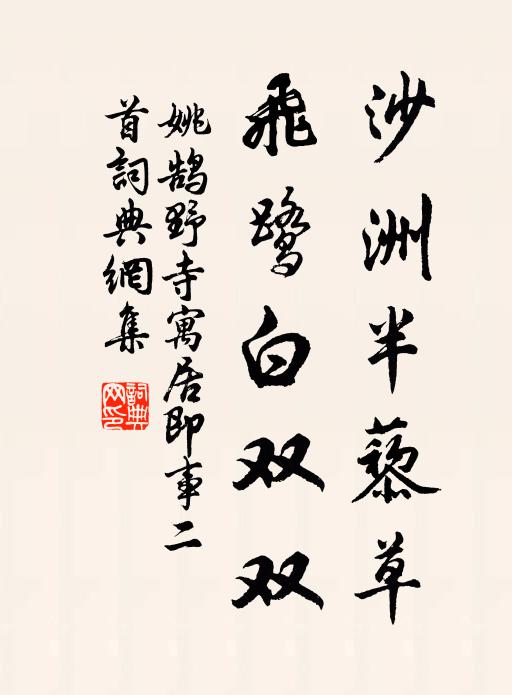 沙洲半藜草
飛鷺白双双
姚鹄野寺寓居即事二
首詞典網集
詞典
网印